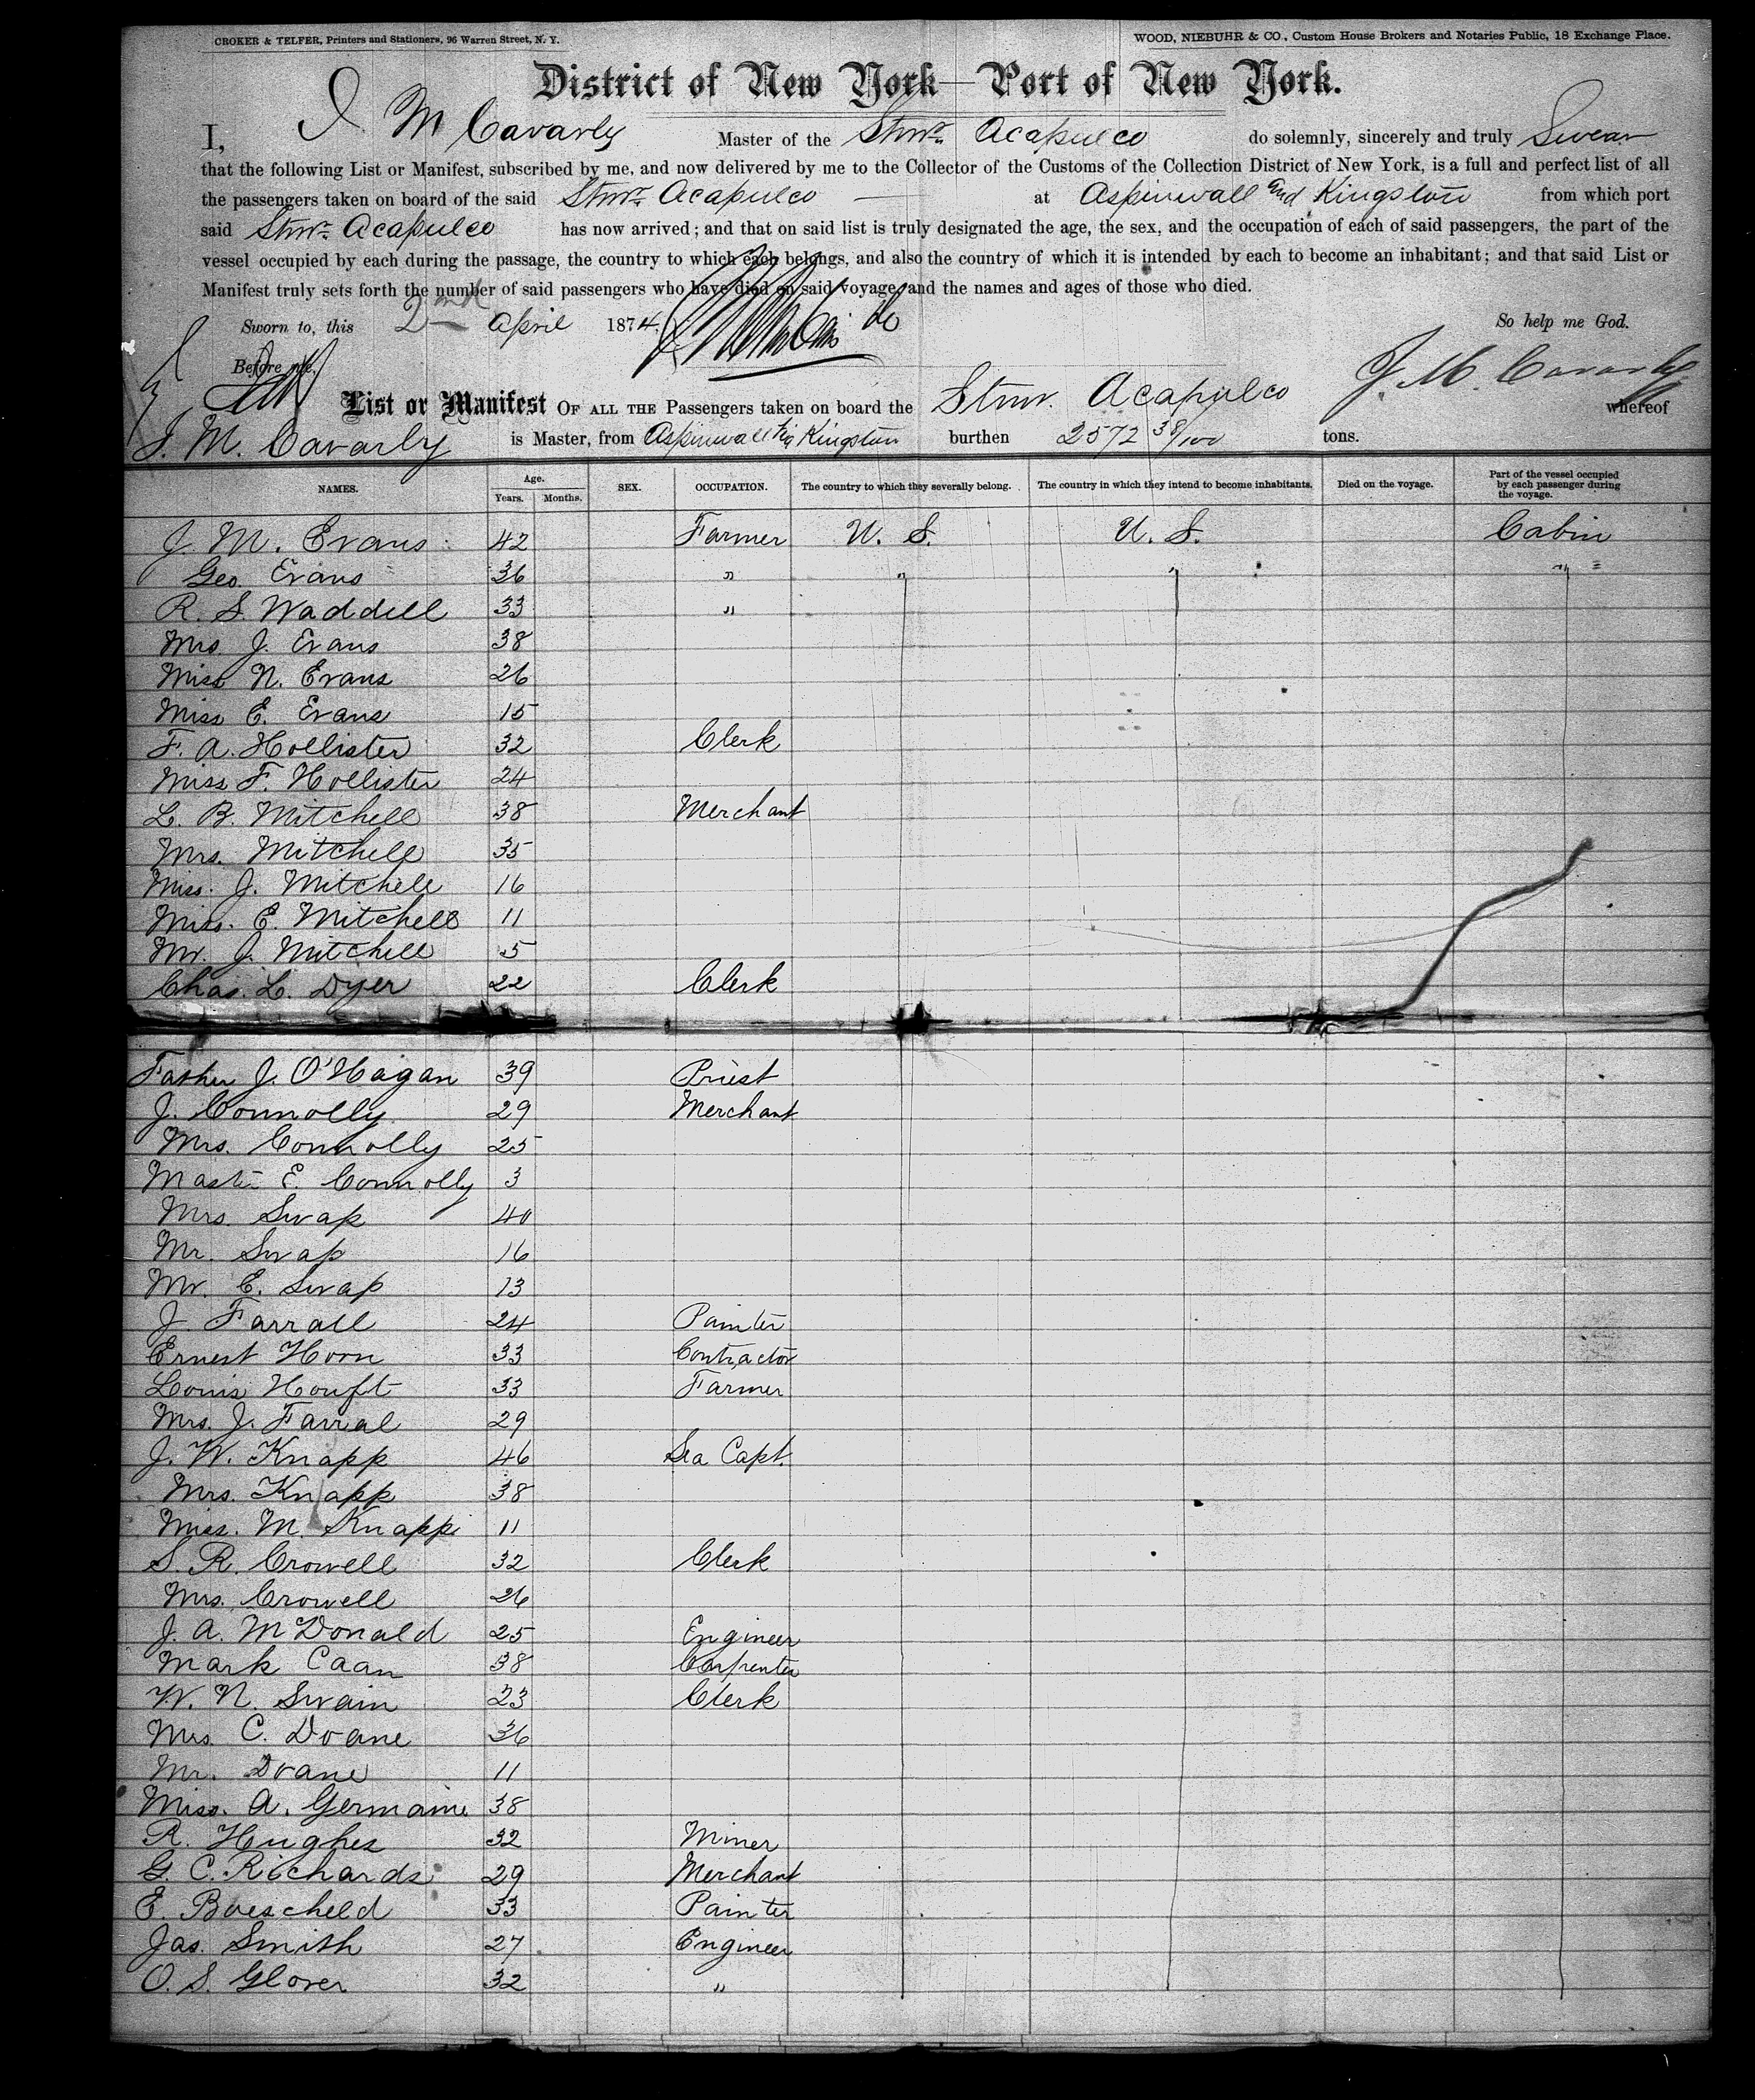 CROKER & TELFER, Printers and Stationers, 96 Warren Street, N. Y.
WOOD, NIEBUHR & CO., Custom House Brokers and Notaries Public, 18 Exchange Place.
District of New York—Port of New York.
I, J M Cavarly Master of the Stmr. Acapulco do solemnly, sincerely and truly Swear
that the following List or Manifest, subscribed by me, and now delivered by me to the Collector of the Customs of the Collection District of New York, is a full and perfect list of all
the passengers taken on board of the said Stmr. Acapulco at Aspinwall and Kingston from which port
said Stmr. Acapulco has now arrived; and that on said list is truly designated the age, the sex, and the occupation of each of said passengers, the part of the
vessel occupied by each during the passage, the country to which each belongs, and also the country of which it is intended by each to become an inhabitant; and that said List or
Manifest truly sets forth the number of said passengers who have died on said voyage, and the names and ages of those who died.
Sworn to, this 2nd April 1874. So help me God.
Before me, J. M. Cavarly
List or Manifest OF ALL THE Passengers taken on board the Stmr. Acapulco whereof
J. M. Cavarly is Master, from Aspinwall via Kingston burthen 2572 38/100 tons.
NAMES. Age. Years. Months. SEX. OCCUPATION. The country to which they severally belong. The country in which they intend to become inhabitants. Died on the voyage. Part of the vessel occupied by each passenger during the voyage.
J. M. Evans 42 Farmer U. S. U. S. Cabin
Geo. Evans 36 " " " "
R. S. Waddell 33 "
Mrs J. Evans 38
Miss N. Evans 26
Miss E. Evans 15
F. A. Hollister 32 Clerk
Miss F. Hollister 24
L. B. Mitchell 38 Merchant
Mrs. Mitchell 35
Miss. J. Mitchell 16
Miss. E. Mitchell 11
Mr. J. Mitchell 5
Chas. L. Dyer 22 Clerk
Father J. O'Hagan 39 Priest
J. Connolly 29 Merchant
Mrs. Connolly 25
Mastr E. Connolly 3
Mrs. Swap 40
Mr. Swap 16
Mr. E. Swap 13
J. Farrall 24 Painter
Ernest Horn 33 Contractor
Louis Houft 33 Farmer
Mrs. J. Farral 29
J. W. Knapp 46 Sea Capt.
Mrs. Knapp 38
Miss. M. Knapp 11
S. R. Crowell 32 Clerk
Mrs. Crowell 26
J. A. McDonald 25 Engineer
Mark Caan 38 Carpenter
W. N. Swain 23 Clerk
Mrs C. Doane 36
Mr. Doane 11
Miss. A. Germaine 38
R. Hughes 32 Miner
G. C. Richards 29 Merchant
E. Buescheld 33 Painter
Jas. Smith 27 Engineer
O. S. Glover 32 "